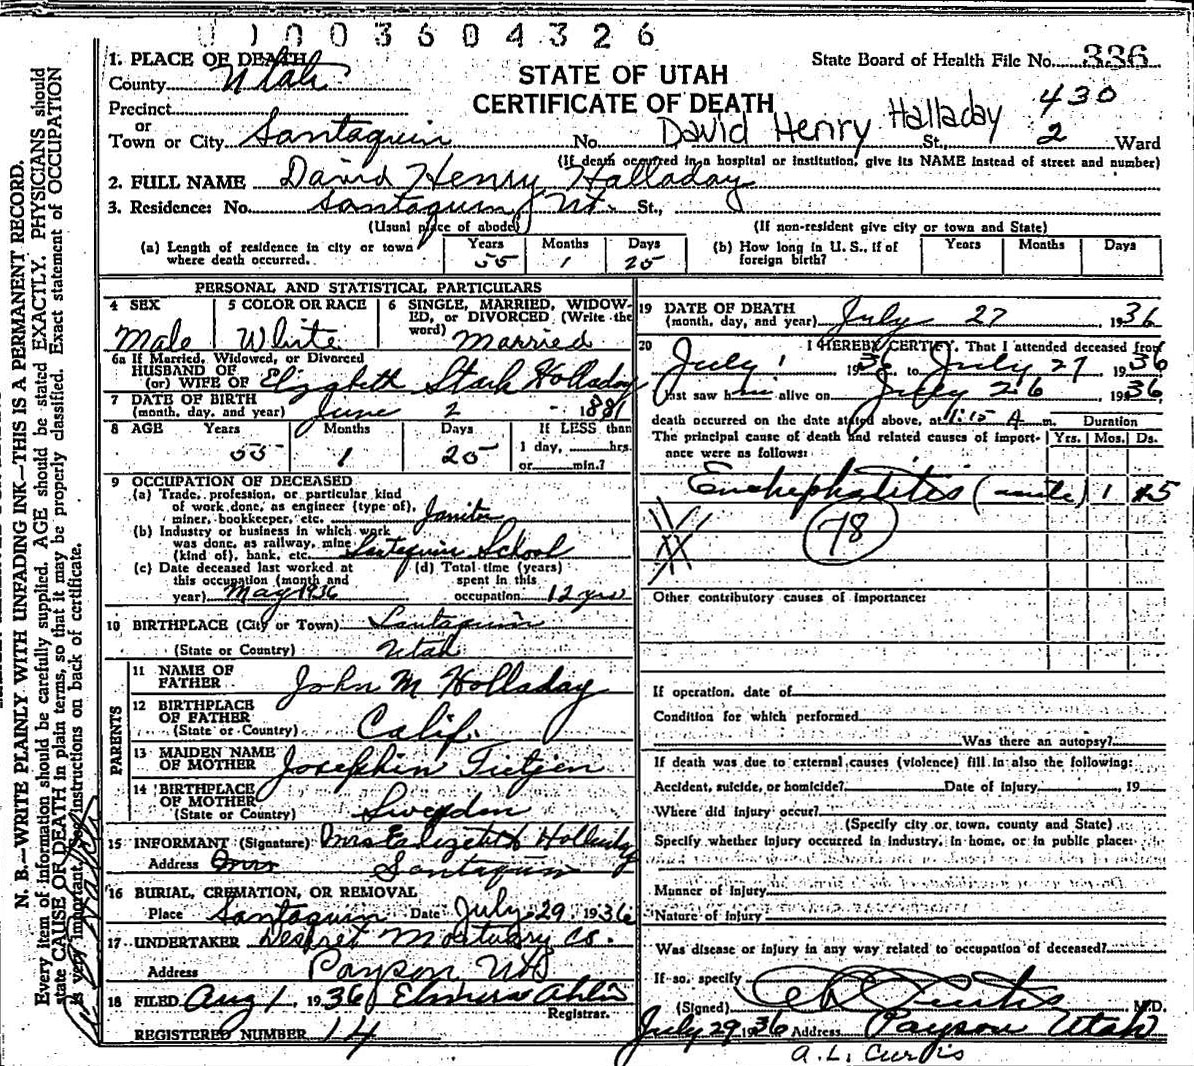 0 1 0 0 3 6 0 4 3 2 6
1. PLACE OF DEATH
County Utah
State Board of Health File No. 336
STATE OF UTAH
CERTIFICATE OF DEATH
430
Precinct
or
Town or City Santaquin No. David Henry Halladay St., 2 Ward
(If death occurred in a hospital or institution, give its NAME instead of street and number)
2. FULL NAME David Henry Halladay
3. Residence: No. Santaquin Ut. St.,
(Usual place of abode) (If non-resident give city or town and State)
(a) Length of residence in city or town where death occurred. Years 55 Months 1 Days 25
(b) How long in U. S., if of foreign birth? Years Months Days
PERSONAL AND STATISTICAL PARTICULARS
4 SEX Male
5 COLOR OR RACE White
6 SINGLE, MARRIED, WIDOWED, or DIVORCED (Write the word) Married
6a If Married, Widowed, or Divorced
HUSBAND OF
(or) WIFE OF Elizabeth Stark Holladay
7 DATE OF BIRTH
(month, day, and year) June 2 - 1881
8 AGE Years 55 Months 1 Days 25 If LESS than 1 day, hrs. or min.?
9 OCCUPATION OF DECEASED
(a) Trade, profession, or particular kind
of work done, as engineer (type of),
miner, bookkeeper, etc. Janitor
(b) Industry or business in which work
was done, as railway, mine
(kind of), bank, etc. Santaquin School
(c) Date deceased last worked at
this occupation (month and
year) May 1936
(d) Total time (years)
spent in this
occupation 12 yrs
10 BIRTHPLACE (City or Town) Santaquin
(State or Country) Utah
PARENTS
11 NAME OF
FATHER John M Holladay
12 BIRTHPLACE
OF FATHER
(State or Country) Calif.
13 MAIDEN NAME
OF MOTHER Josephin Tietjen
14 BIRTHPLACE
OF MOTHER
(State or Country) Sweden
15 INFORMANT (Signature) Mrs Elizabeth Holladay
Address Santaquin
16 BURIAL, CREMATION, OR REMOVAL
Place Santaquin Date July 29 1936
17 UNDERTAKER Deseret Mortuary Co.
Address Payson Ut
18 FILED Aug 1, 1936 Elmera Ahlin
Registrar.
REGISTERED NUMBER 14
19 DATE OF DEATH
(month, day, and year) July 27, 1936
20 I HEREBY CERTIFY, That I attended deceased from
July 1 1936 to July 27 1936
last saw him alive on July 26, 1936
death occurred on the date stated above, at 1:15 A m.
The principal cause of death and related causes of importance were as follows:
Duration
Yrs. Mos. Ds.
Encephalitis (acute) 1
78
Other contributory causes of importance:
If operation, date of
Condition for which performed
Was there an autopsy?
If death was due to external causes (violence) fill in also the following:
Accident, suicide, or homicide? Date of injury , 19
Where did injury occur?
(Specify city or town, county and State)
Specify whether injury occurred in industry, in home, or in public place:
Manner of Injury
Nature of Injury
Was disease or injury in any way related to occupation of deceased?
If so, specify
(Signed) A L Curtis M.D.
July 29 1936 Address Payson Utah
A. L. Curtis
N. B.—WRITE PLAINLY WITH UNFADING INK—THIS IS A PERMANENT RECORD.
Every item of information should be carefully supplied. AGE should be stated EXACTLY. PHYSICIANS should
state CAUSE OF DEATH in plain terms, so that it may be properly classified. Exact statement of OCCUPATION
is very important. See instructions on back of certificate.